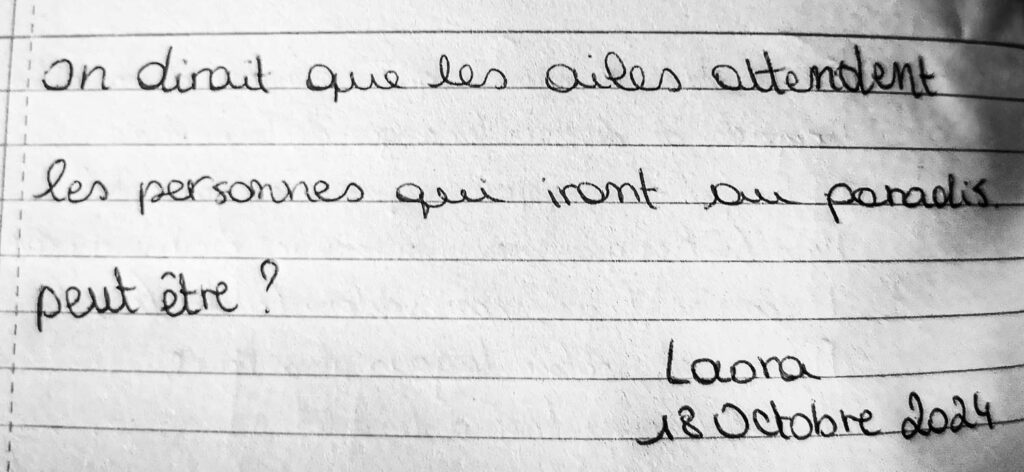 on dirait que les ailes attendent
les personnes qui iront au paradis.
peut être ?
Laora
18 Octobre 2024